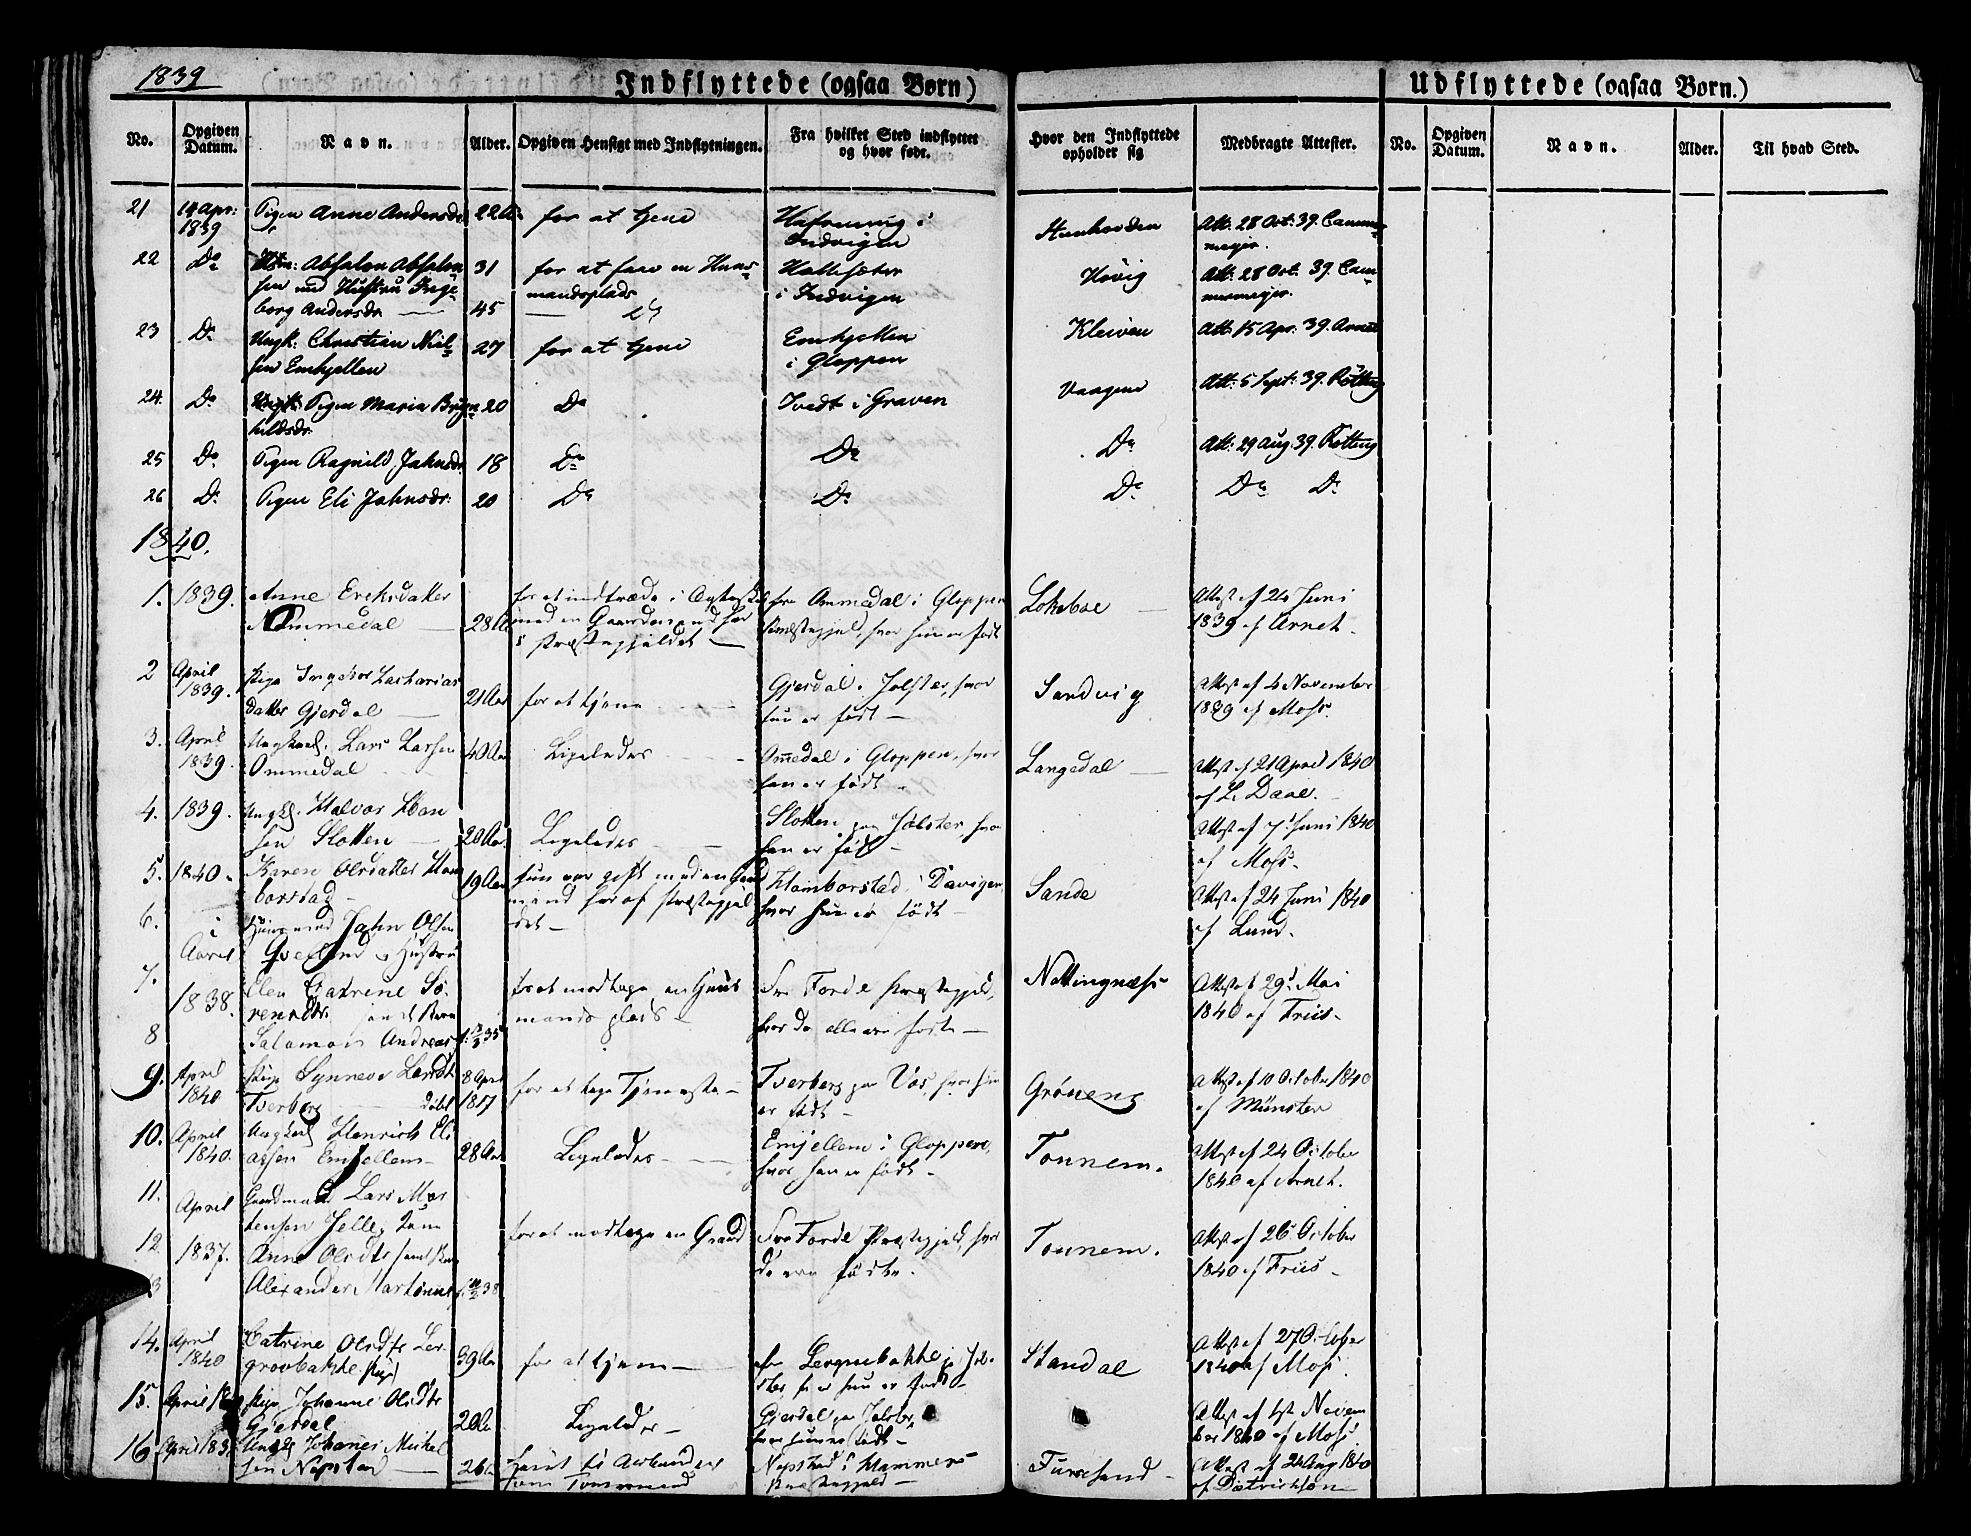 1839
Indflyttede (ogsaa Børn)
Udflyttede (ogsaa Børn.)
No. Opgiven Datum. Navn. Alder. Opgiven Hensigt med Indflytningen. Fra hvilket Sted indflyttet og hvor født. Hvor den Indflyttede opholder sig Medbragte Attester. No. Opgiven Datum. Navn. Alder. Til hvad Sted.
21 14 Apr: 1839 Pigen Anne Andersdr 22 A. for at tjene i Indvigen Att. 28 Oct: 39. Cammermeyer.
22 Do Absalon Absalonsen med Hustru Ingeborg Andersdr 31 45 for at faae en Huusmandsplads i Indvigen Hövig Att: 28 Oct. 39. Cammermeyer.
23 Do Ungk: Christian Nielsen Emhjellen 27 for at tjene Emhjellen i Gloppen Kleiven Att: 15 Apr: 39. Arnet
24. Do Pigen Maria Brynhildsdr. 20 Do Tvedt i Graven Vaagene Att: 5 Sept: 39.
25 Do Pigen Ragnild Jahnsdr. 18 Do Do Do Att: 29 Aug. 39.
26 Do Pigen Eli Jahnsdr. 20 Do Do Do Do Do
1840.
1. 1839. Anne Ericksdatter Ommedal 28 Aar for at indtræde i Ægteskab med en Gaardmand her i Præstegjeldet fra Ommedal i Gloppen Præstegjel, hvor hun er født Lokeboe Attest af 24 Juni 1839 af Arnet.
2 April 1839. Pige Ingebor Zachariasdatter Gjerdal 21 Aar for at tjene Gjerdal i Jølster, hvor hun er født Sandvig Attest af 4 November 1839 af Moss.
3. April 1839. Ungkarl. Lars Larsen Ommedal 40 Aar Ligeledes Ommedal i Gloppen, hvor han er født Langedal Attest af 21 April 1840 af L. Daae.
4. 1839. Ungk. Halvor Hansen Slotten 20 Aar. Ligeledes Slotten paa Jølster, hvor han er født Attest af 7de Juni 1840 af Moss.
5. 1840. Karen Olsdatter Hamborstad 19 Aar hun var gift med en mand her af Præstegjeldet Hamborstad i Davigen, hvor hun er født Sande Attest af 24 Juni 1840 af Lund.
6. i April Huusmand Jahn Olsen Hustru
7. 1838. Elen Catrine Sörensdtr samt Børn for at modtage en Huusmandsplads fra Förde Præstegjeld, hvor de alle ere födte Attest af 29de Mai 1840 af Friis.
8 Salamon Andreas
9. April 1840 Pige Synneve Larsdt Tverberg döbt 8 April 1817 for at tage Tjeneste Tverberg paa Vos, hvor hun er født Gröneng Attest af 10 October 1840 af Münster
10. April 1840. Ungkarl Henrich Eliassen Emhjellem 28 Aar Ligeledes Emjellem i Gloppen, hvor han er født Tonnem. Attest af 24 October 1840 af Arnet.
11. April Gaardmand Lars Mortensen
12. 1837. Anne Olsdtr samt Børn for at modtage en Gaard fra Förde Præstegjeld, hvor de ere födte. Tonnem. Attest af 26 October 1840 af Friis
13 Alexander Martinus
14. April 1840 Catrine Olsdtr Lergrovbakke (Pige) 39 Aar for at tjene hvor hun er født Standal Attest af 27 October 1840 af Moss.
15. April Pige Johanne Olsdtr Gjerdal 20 Aar Ligeledes Gjerdal paa Jølster, hvor hun er født Attest af 1st November 1840 af Moss
16 April Ungk Johanes Mickelsen Nipstad 26 Nipstad i Hammers Præstegjeld Furesund Attest af 24 Aug 1840 af Dietrichson